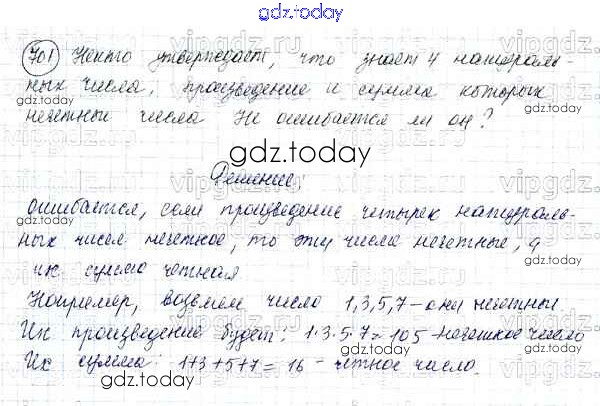 gdz.today
701 Некто утверждает, что знает 4 натураль-
ных числа, произведение и сумма которых
gdz.today
нечетные числа Не ошибается ли он?
gdz.today
Решение:
ошибается, если произведение четырех натураль-
ных чисел нечетное, то эти числа нечетные, а
их сумма четная
gdz.today
Например, возьмем числа 1,3,5,7 – они нечетны.
Их произведение будет: 1·3·5·7=105 – нечетное число
gdz.today
Их сумма: 1+3+5+7= 16 – четное число.
gdz.today